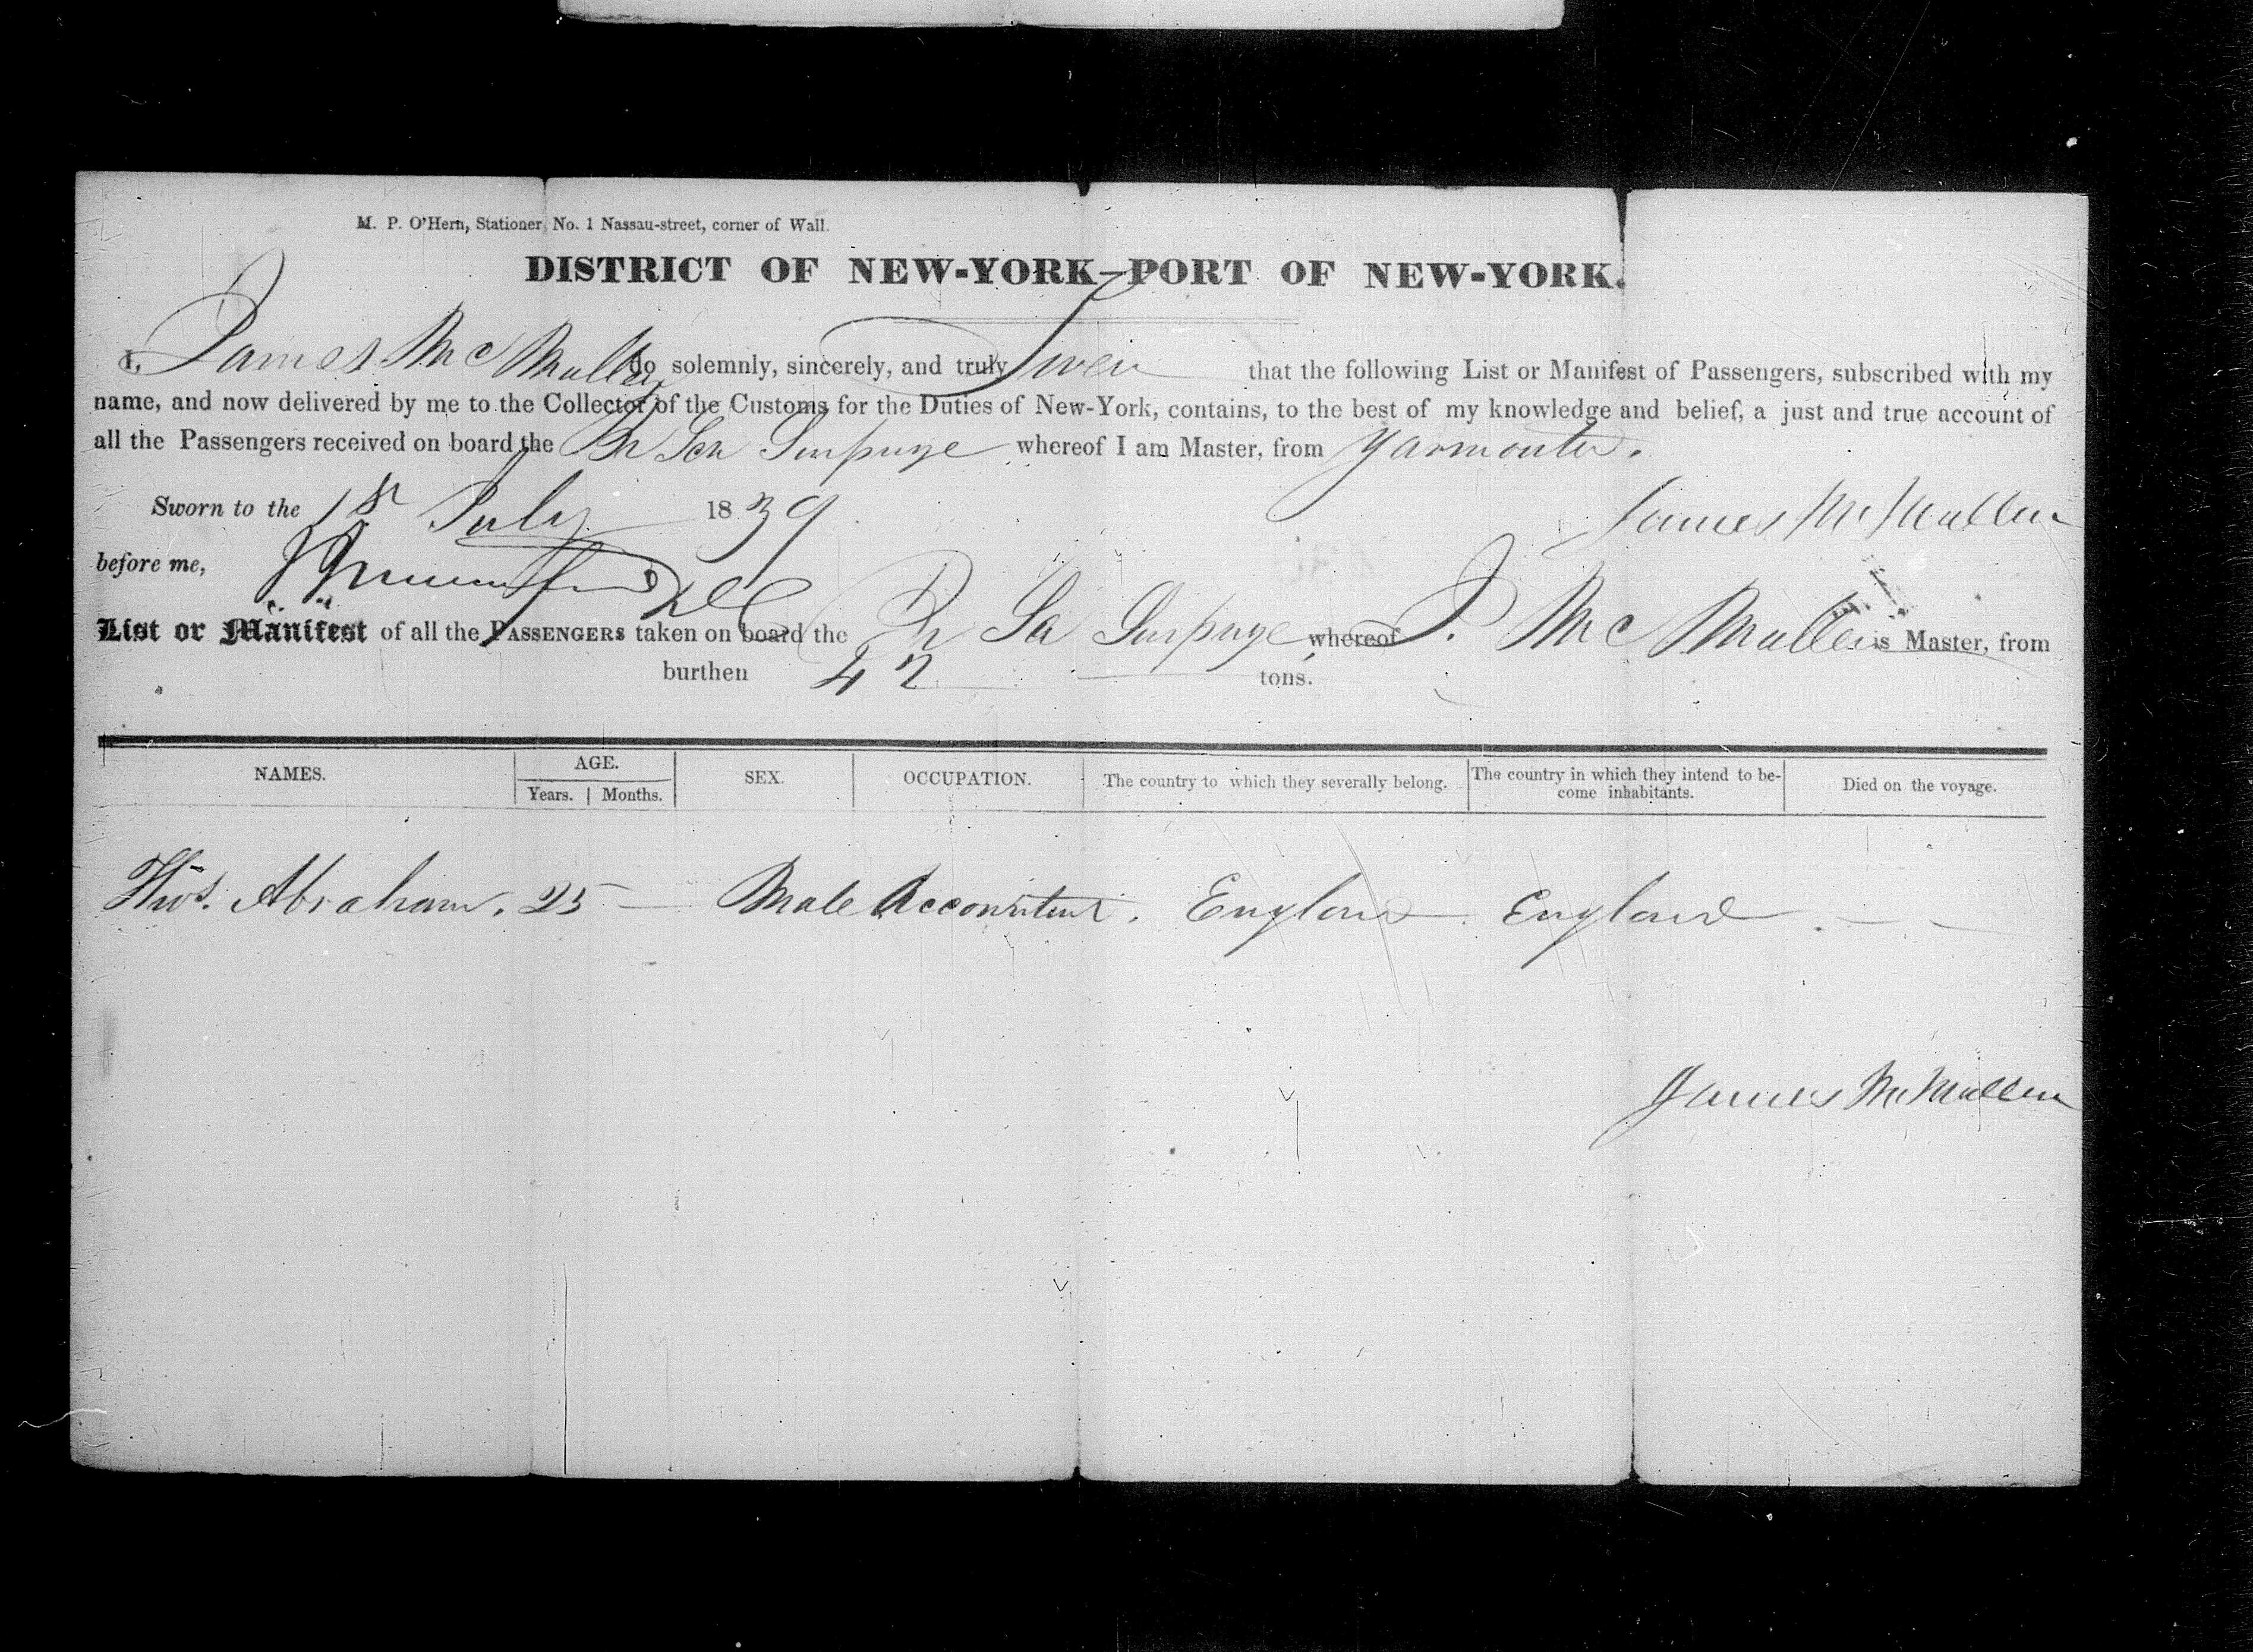 M. P. O'Hern, Stationer, No. 1 Nassau-street, corner of Wall.
DISTRICT OF NEW-YORK—PORT OF NEW-YORK.
I, James McMullen do solemnly, sincerely, and truly Swear that the following List or Manifest of Passengers, subscribed with my
name, and now delivered by me to the Collector of the Customs for the Duties of New-York, contains, to the best of my knowledge and belief, a just and true account of
all the Passengers received on board the Br Sch whereof I am Master, from Yarmouth.
Sworn to the 1st July 1839 James McMullen
before me,
List or Manifest of all the PASSENGERS taken on board the Br whereof J. McMullen is Master, from
burthen 42 tons.
NAMES. AGE. SEX. OCCUPATION. The country to which they severally belong. The country in which they intend to be- Died on the voyage.
Years. Months. come inhabitants.
Thos. Abraham. 25 — Male Accountant. England England — —
James McMullen